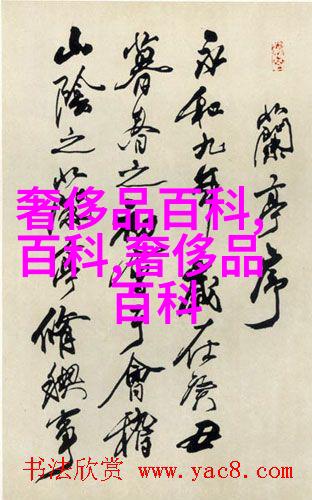 蘭亭序
永和九年歲在癸丑
暮春之初會于會稽
山陰之蘭亭脩禊事
奢侈品百科,
百科,奢侈品
百科
书法欣赏 www.yac8.com